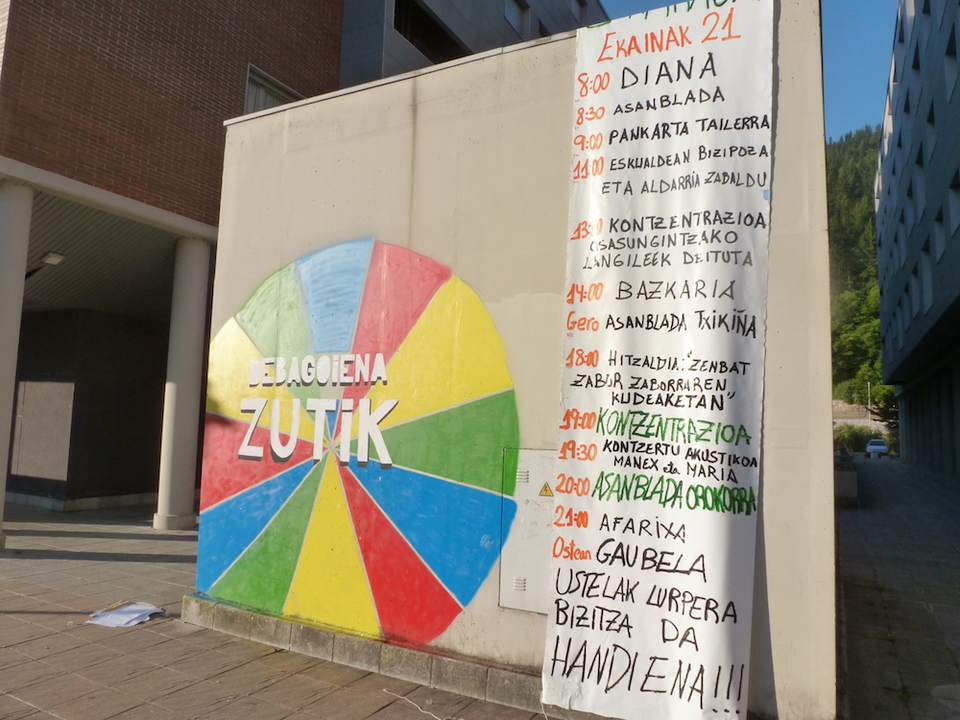 DEBAGOIENA
ZUTiK
EKAINAK 21
8:00 DIANA
8:30 ASANBLADA
9:00 PANKARTA TAILERRA
11:00 ESKUALDEAN BIZIPOZA
ETA ALDARRIA ZABALDU
13:00 KONTZENTRAZIOA
OSASUNGINTZAKO
LANGILEEK DEITUTA
14:00 BAZKARIA
Gero ASANBLADA TXIKIÑA
18:00 HITZALDIA: "ZENBAT
ZABOR ZABORRAREN
KUDEAKETAN"
19:00 KONTZENTRAZIOA
19:30 KONTZERTU AKUSTIKOA
MANEX eta MARIA
20:00 ASANBLADA OROKORRA
21:00 AFARIXA
Ostean GAUBELA
USTELAK LURPERA
BIZITZA DA
HANDIENA!!!